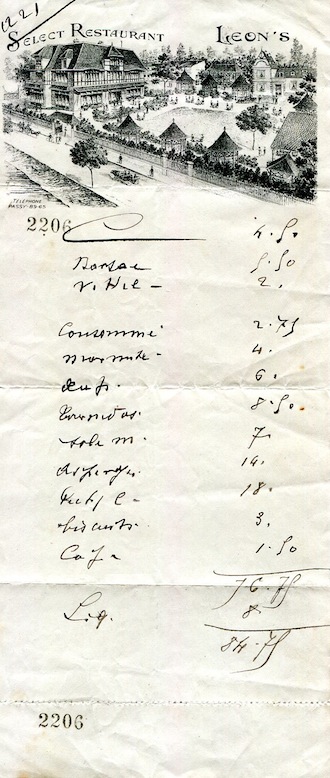 221
SELECT RESTAURANT LEON'S
TELEPHONE
PASSY 89-65
2206 4.50
Barsac 5.50
Vittel - 2.
Consommé 2.75
marmite - 4.
Œufs. 6.
Tournedos. 8.50.
sole m. 7.
asperges. 14.
18.
biscuits. 3.
Café 1.50
76.75
Liq. 8
84.75
2206